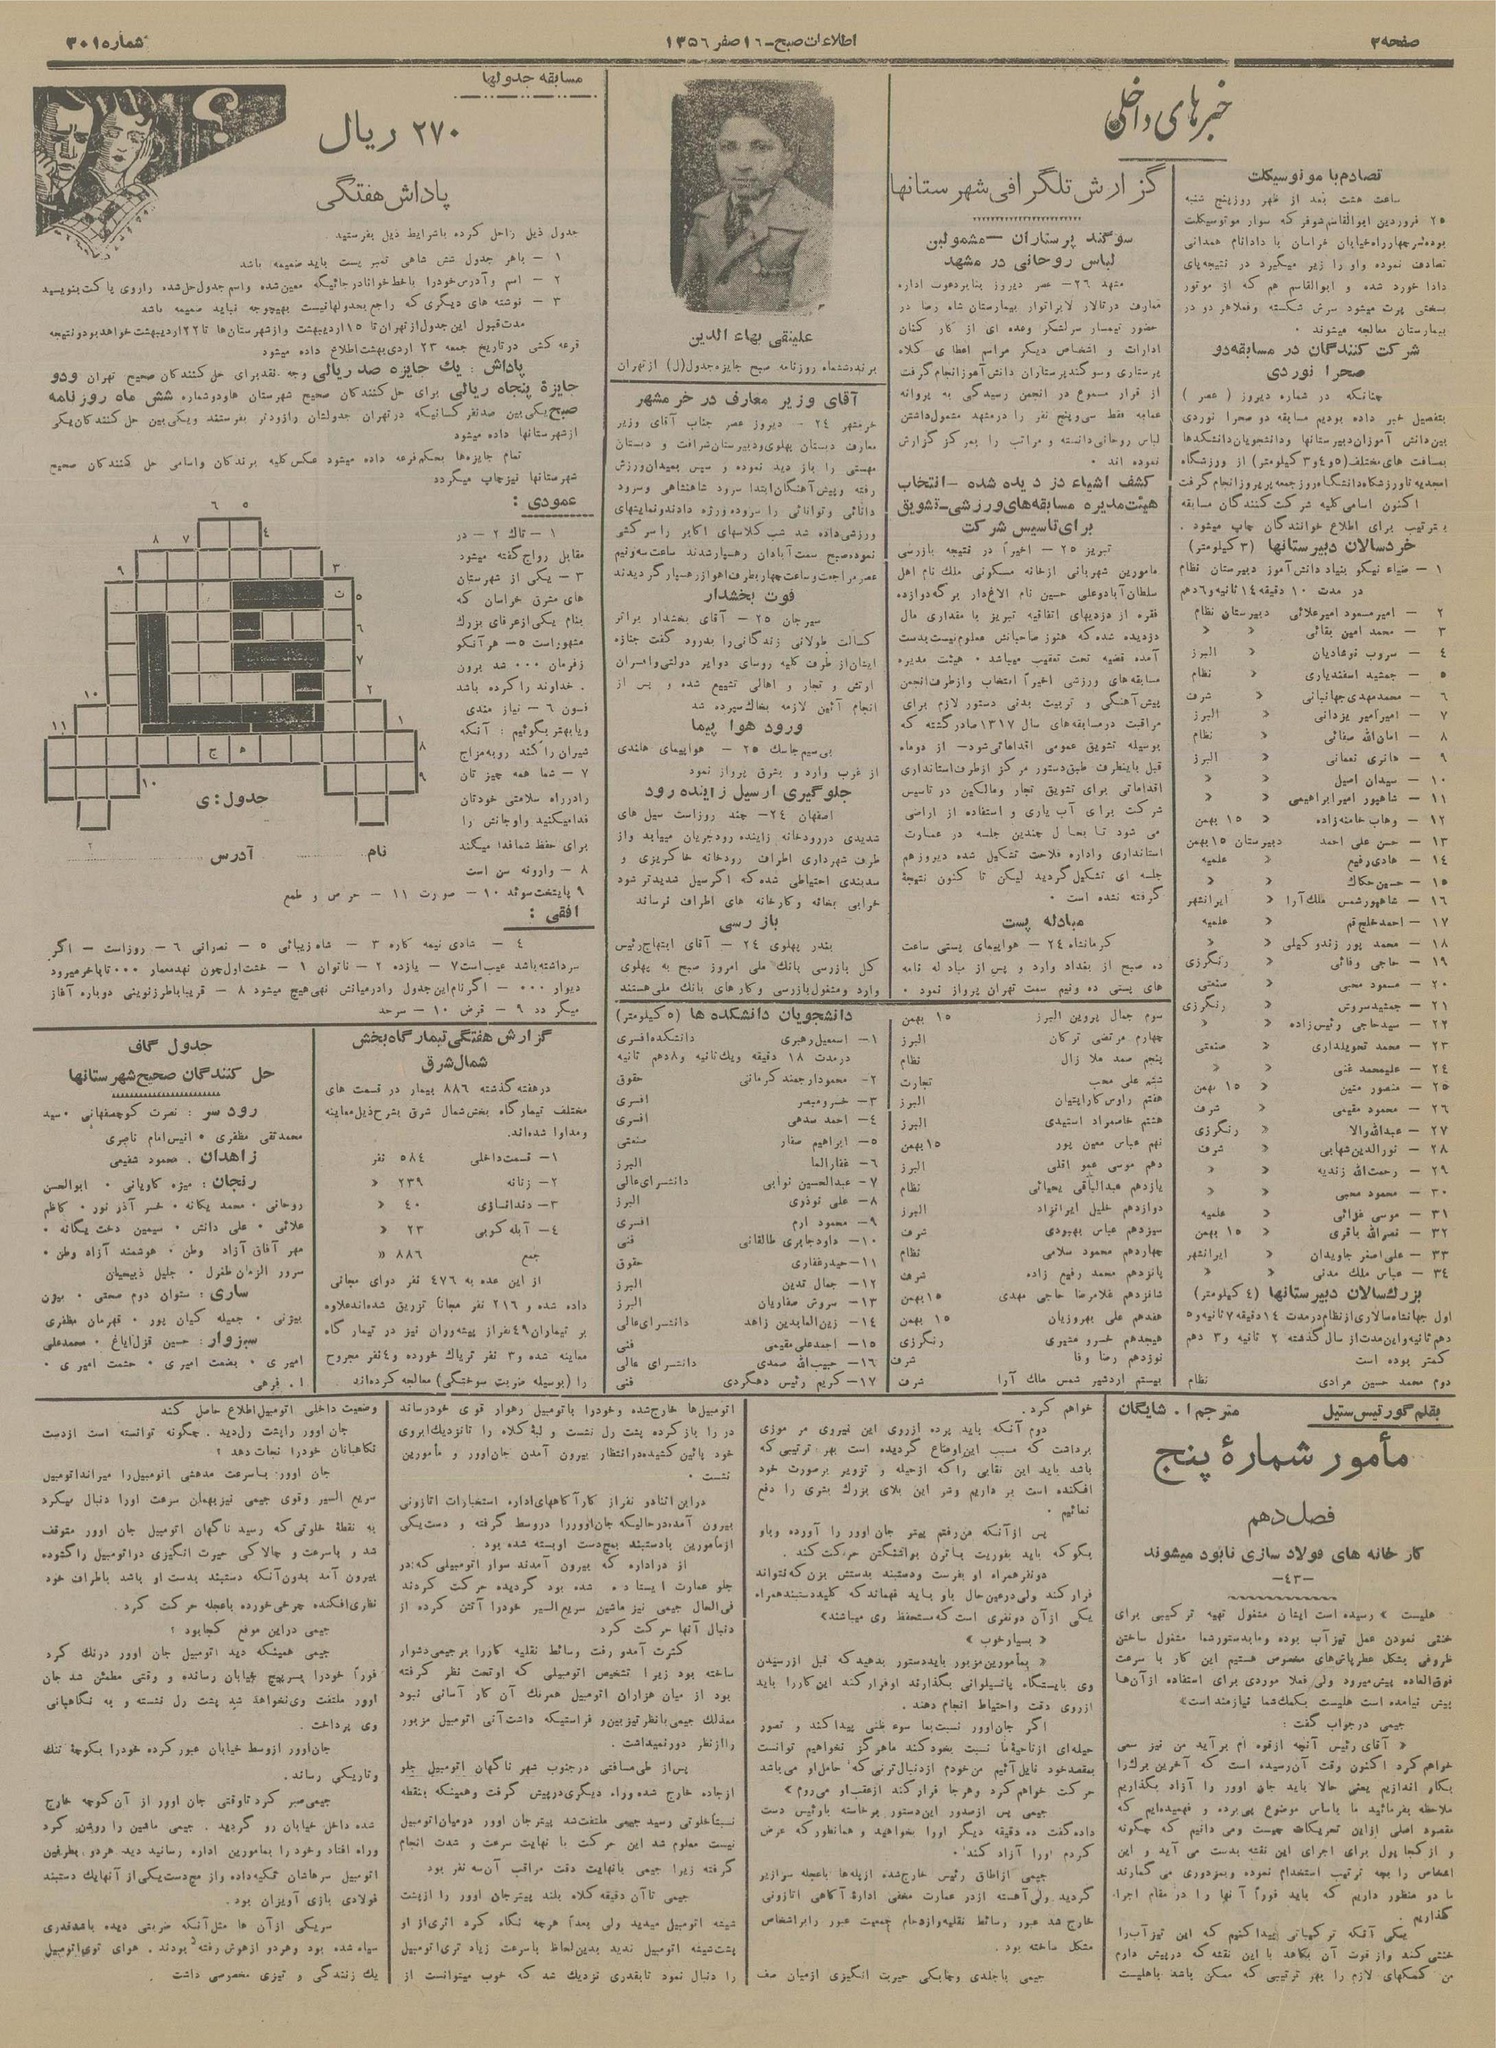 صفحه ۳
اطلاعات صبح - ۱۶ صفر ۱۳۵۶
شماره ۳۰۱۵
خبرهای داخلی
تصادم با موتوسیکلت
ساعت هشت بعد از ظهر روز پنج شنبه
۲۵ فروردین ابوالقاسم شوفر که سوار موتوسیکلت
بوده سر چهارراه خیابان خراسان با دادانام همدانی
تصادف نموده و او را زیر میگیرد در نتیجه پای
دادا خورد شده و ابوالقاسم هم که از موتور
بسختی پرت میشود سرش شکسته و فعلا هر دو در
بیمارستان معالجه میشوند .
شرکت کنندگان در مسابقه دو
صحرا نوردی
چنانکه در شماره دیروز ( عصر )
بتفصیل خبر داده بودیم مسابقه دو صحرا نوردی
بین دانش آموزان دبیرستانها و دانشجویان دانشکدها
بمسافت های مختلف (۵ و ۴ و ۳ کیلومتر) از ورزشگاه
امجدیه تا ورزشگاه دانشگاه روز جمعه پریروز انجام گرفت
اکنون اسامی کلیه شرکت کنندگان مسابقه
بترتیب برای اطلاع خوانندگان چاپ میشود .
خردسالان دبیرستانها (۳ کیلومتر)
۱ - ضیاء نیکو بنیاد دانش آموز دبیرستان نظام
در مدت ۱۰ دقیقه ۱۴ ثانیه و ۶ دهم
۲ - امیر مسعود امیر علائی دبیرستان نظام
۳ - محمد امین بقائی « «
۴ - سروب نوشادیان « البرز
۵ - جمشید اسفندیاری « نظام
۶ - محمد مهدی جهانبانی « شرف
۷ - امیر امیر یزدانی « البرز
۸ - امان الله صفائی « نظام
۹ - هانری نعمانی « البرز
۱۰ - سیدان اصیل « «
۱۱ - شاهپور امیر ابراهیمی « «
۱۲ - وهاب خامنه زاده « ۱۵ بهمن
۱۳ - حسن علی احمد دبیرستان ۱۵ بهمن
۱۴ - هادی رفیع « علمیه
۱۵ - حسین حکاک « «
۱۶ - شاهپور شمس ملک آرا « ایرانشهر
۱۷ - احمد خلج قم « علمیه
۱۸ - محمد پور زندو کیلی « «
۱۹ - حاجی وفائی « رنگرزی
۲۰ - مسعود محبی « صنعتی
۲۱ - جمشید سروش « رنگرزی
۲۲ - سید حاجی رئیس زاده « «
۲۳ - محمد تحویلداری « صنعتی
۲۴ - علیمحمد غنی « «
۲۵ - منصور متین « ۱۵ بهمن
۲۶ - محمود مقیمی « شرف
۲۷ - عبدالله والا « رنگرزی
۲۸ - نورالدین شهابی « شرف
۲۹ - رحمت الله زندیه « «
۳۰ - محمود محبی « «
۳۱ - موسی غزائی « علمیه
۳۲ - نصرالله باقری « ۱۵ بهمن
۳۳ - علی اصغر جاویدان « ایرانشهر
۳۴ - عباس ملک مدنی « «
بزرگسالان دبیرستانها (۴ کیلومتر)
اول جهانشاه سالاری از نظام در مدت ۱۴ دقیقه ۷ ثانیه و ۵
دهم ثانیه و این مدت از سال گذشته ۲ ثانیه و ۳ دهم
کمتر بوده است
دوم محمد حسین مرادی نظام
گزارش تلگرافی شهرستانها
سوگند پرستاران - مشمولین
لباس روحانی در مشهد
مشهد ۲۶- عصر دیروز بنا بدعوت اداره
معارف در تالار لابراتوار بیمارستان شاه رضا در
حضور تیمسار سرلشکر وعده ای از کار کنان
ادارات و اشخاص دیگر مراسم اعطای کلاه
پرستاری و سوگند پرستاران دانش آموز انجام گرفت
از قرار مسموع در انجمن رسیدگی به پروانه
عمامه فقط سی و پنج نفر را در مشهد مشمول داشتن
لباس روحانی دانسته و مراتب را بمرکز گزارش
نموده اند .
کشف اشیاء دزدیده شده - انتخاب
هیئت مدیره مسابقه های ورزشی - تشویق
برای تاسیس شرکت
تبریز ۲۵ - اخیراً در نتیجه بازرسی
مامورین شهربانی از خانه مسکونی ملک نام اهل
سلطان آباد و علی حسین نام الاغدار برگه دوازده
فقره از دزدیهای اتفاقیه تبریز با مقداری مال
دزدیده شده که هنوز صاحبانش معلوم نیست بدست
آمده قضیه تحت تعقیب میباشد . هیئت مدیره
مسابقه های ورزشی اخیراً انتخاب و از طرف انجمن
پیش آهنگی و تربیت بدنی دستور لازم برای
مراقبت در مسابقه های سال ۱۳۱۷ صادر گشته که
بوسیله تشویق عمومی اقداماتی شود - از دو ماه
قبل باینطرف طبق دستور مرکز از طرف استانداری
اقداماتی برای تشویق تجار و مالکین در تاسیس
شرکت برای آب یاری و استفاده از اراضی
می شود تا بحال چندین جلسه در عمارت
استانداری و اداره فلاحت تشکیل شده دیروز هم
جلسه ای تشکیل گردید لیکن تا کنون نتیجهٔ
گرفته نشده است .
مبادله پست
کرمانشاه ۲۴ - هواپیمای پستی ساعت
ده صبح از بغداد وارد و پس از مبادله نامه
های پستی ده ونیم سمت تهران پرواز نمود .
سوم جمال پروین البرز ۱۵ بهمن
چهارم مرتضی ترکان البرز
پنجم صمد ملا زال نظام
ششم علی محب تجارت
هفتم راوس کاراپتیان البرز
هشتم خاصمراد استیدی البرز
نهم عباس معین پور ۱۵ بهمن
دهم موسی عمو اقلی البرز
یازدهم عبدالباقی یحیائی نظام
دوازدهم خلیل ایرانزاد البرز
سیزدهم عباس بهبودی شرف
چهاردهم محمود سلامی نظام
پانزدهم محمد رفیع زاده شرف
شانزدهم غلامرضا حاجی مهدی ۱۵ بهمن
هفدهم علی بهروزیان ۱۵ بهمن
هیجدهم خسرو مشیری رنگرزی
نوزدهم رضا وفا شرف
بیستم اردشیر شمس ملک آرا شرف
علینقی بهاء الدین
برنده ششماه روزنامه صبح جایزه جدول (ل) از تهران
آقای وزیر معارف در خرمشهر
خرمشهر ۲۴ - دیروز عصر جناب آقای وزیر
معارف دبستان پهلوی و دبیرستان شرافت و دبستان
مهستی را باز دید نموده و سپس بمیدان ورزش
رفته و پیش آهنگان ابتدا سرود شاهنشاهی و سرود
دانائی و توانائی را سروده ورژه دادند و نمایشهای
ورزشی داده شد شب کلاسهای اکابر را سرکشی
نموده صبح سمت آبادان رهسپار شدند ساعت سه ونیم
عصر مراجعت و ساعت چهار بطرف اهواز رهسپار گردیدند
فوت بخشدار
سیرجان ۲۵ - آقای بخشدار براثر
کسالت طولانی زندگانی را بدرود گفت جنازه
ایشان از طرف کلیه روسای دوایر دولتی و افسران
ارتش و تجار و اهالی تشییع شده و پس از
انجام آئین لازمه بخاک سپرده شد
ورود هوا پیما
بی سیم جاسک ۲۵ - هواپیمای هلندی
از غرب وارد و بشرق پرواز نمود
جلوگیری از سیل زاینده رود
اصفهان ۲۴ - چند روز است سیل های
شدیدی در رودخانه زاینده رود جریان مییابد و از
طرف شهرداری اطراف رودخانه خاکریزی و
سدبندی احتیاطی شده که اگر سیل شدیدتر شود
خرابی بخانه و کارخانه های اطراف نرساند
بازرسی
بندر پهلوی ۲۴ - آقای ابتهاج رئیس
کل بازرسی بانک ملی امروز صبح به پهلوی
وارد و مشغول بازرسی و کارهای بانک ملی هستند
دانشجویان دانشکده ها (۵ کیلومتر)
۱- اسمعیل رهبری دانشکده افسری
در مدت ۱۸ دقیقه و یک ثانیه و ۸ دهم ثانیه
۲- محمود ارجمند کرمانی حقوق
۳- خسرو مبصر افسری
۴- احمد سدهی افسری
۵- ابراهیم صفار صنعتی
۶- غفار الما البرز
۷- عبدالحسین نوابی دانشسرای عالی
۸- علی نوذری البرز
۹- محمود ارم افسری
۱۰- داود جابری طالقانی فنی
۱۱- حیدر غفاری حقوق
۱۲- جمال تدین البرز
۱۳- سروش صفاریان البرز
۱۴- زین العابدین زاهد دانشسرای عالی
۱۵- احمد علی مقیمی فنی
۱۶- حبیب الله صمدی دانشسرای عالی
۱۷- کریم رئیس دهکردی فنی
مسابقه جدولها
۲۷۰ ریال
پاداش هفتگی
جدول ذیل را حل کرده با شرایط ذیل بفرستید
۱ - با هر جدول شش شاهی تمبر پست باید ضمیمه باشد
۲ - اسم و آدرس خود را با خط خوانا در جائیکه معین شده و اسم جدول حل شده را روی پاکت بنویسید
۳ - نوشته های دیگری که راجع بجدولها نیست بهیچوجه نباید ضمیمه باشد
مدت قبول این جدول از تهران تا ۱۵ اردیبهشت و از شهرستان ها تا ۲۲ اردیبهشت خواهد بود و نتیجه
قرعه کشی در تاریخ جمعه ۲۳ اردی بهشت اطلاع داده میشود
پاداش : یک جایزه صد ریالی وجه نقد برای حل کنندگان صحیح تهران و دو
جایزهٔ پنجاه ریالی برای حل کنندگان صحیح شهرستان ها و دو شماره شش ماه روزنامه
صبح یکی بین صد نفر کسانیکه در تهران جدولشان را زودتر بفرستند و یکی بین حل کنندگان یکی
از شهرستانها داده میشود
تمام جایزه ها بحکم قرعه داده میشود عکس کلیه برندگان و اسامی حل کنندگان صحیح
شهرستانها نیز چاپ میگردد
عمودی :
۱ - تاک ۲ - در
مقابل رواج گفته میشود
۳ - یکی از شهرستان
های شرق خراسان که
بنام یکی از عرفای بزرگ
مشهور است ۵ - هر آنکو
زفرمان ۰۰۰ شد برون
. خداوند را کرده باشد
فسون ۶ - نیاز مندی
ویا بهتر بگوئیم : آنکه
شیران را کند روبه مزاج
۷ - شما همه چیز تان
را در راه سلامتی خودتان
فدا میکنید و او جانش را
برای حفظ شما فدا میکند
۸ - وارونه سن است
۹ پایتخت سوئد ۱۰ - صورت ۱۱ - حرص و طمع
۱ ۲ ۳ ۴ ۵ ۶ ۷ ۸ ۹ ۱۰ ۱۱
ت
ج ه
جدول : ی
نام آدرس
افقی :
۴ - شادی نیمه کاره ۳ - شاه زیبائی ۵ - نصرانی ۶ - روز است - اگر
سر داشته باشد عیب است ۷ - یازده ۲ - ناتوان ۱ - خشت اول چون نهد معمار ۰۰۰ تا پاخر میرود
دیوار ۰۰۰ - اگر نام این جدول را در میانش نهی هیچ میشود ۸ - قریبا با طرز نوینی دوباره آغاز
میگردد ۹ - قرض ۱۰ - سرحد
گزارش هفتگی تیمارگاه بخش
شمال شرق
در هفته گذشته ۸۸۶ بیمار در قسمت های
مختلف تیمارگاه بخش شمال شرق بشرح ذیل معاینه
و مداوا شده اند.
۱- قسمت داخلی ۵۸۴ نفر
۲- زنانه ۲۳۹ «
۳- دندانسازی ۴۰ «
۴- آبله کوبی ۲۳ «
جمع ۸۸۶ «
از این عده به ۴۷۶ نفر دوای مجانی
داده شده و ۲۱۶ نفر مجاناً تزریق شده اند علاوه
بر بیماران ۴۹ نفر از پیشه وران نیز در تیمار گاه
معاینه شده و ۳ نفر تریاک خورده و ۴ نفر مجروح
را (بوسیله ضربت سوختگی) معالجه کرده اند
جدول گاف
حل کنندگان صحیح شهرستانها
رود سر : نصرت کوچصفهانی . سید
محمد تقی مظفری . انیس امام ناصری
زاهدان . محمود شفیعی
زنجان : میزه کاویانی . ابوالحسن
روحانی . محمد یگانه . خسر آذر نور . کاظم
علائی . علی دانش . سیمین دخت یگانه .
مهر آفاق آزاد وطن . هوشمند آزاد وطن .
سرور الزمان طغرل . جلیل ذبیحیان
ساری : ستوان دوم صحتی . بیژن
بیژنی . جمیله کیان پور . قهرمان مظفری
سبزوار : حسین قزل ایاغ . محمدعلی
امیری . بضعت امیری . حشمت امیری .
۱ . فرهی
بقلم گورتیس ستیل
مترجم ا. شایگان
مأمور شمارهٔ پنج
فصل دهم
کارخانه های فولاد سازی نابود میشوند
-۴۳-
هلیست » رسیده است ایشان مشغول تهیه ترکیبی برای
خنثی نمودن عمل تیزآب بوده و ما بدستور شما مشغول ساختن
ظروفی بشکل عطرپاش های مخصوص هستیم این کار با سرعت
فوق العاده پیش میرود ولی فعلا موردی برای استفاده از آنها
پیش نیامده است هلیست بکمک شما نیازمند است»
جیمی در جواب گفت :
« آقای رئیس آنچه از قوه ام برآید من نیز سعی
خواهم کرد اکنون وقت آن رسیده است که آخرین برگ را
بکار اندازیم یعنی حالا باید جان اوور را آزاد بگذاریم
ملاحظه بفرمائید ما باساس موضوع پی برده و فهمیده ایم که
مقصود اصلی از این تحریکات چیست و می دانیم که چگونه
و از کجا پول برای اجرای این نقشه بدست می آید و این
اشخاص را بچه ترتیب استخدام نموده و بمزدوری می گمارند
ما دو منظور داریم که باید فوراً آنها را در مقام اجرا
گذاریم .
یکی آنکه ترکیباتی پیدا کنیم که این تیزآب را
خنثی کند و از قوت آن بکاهد با این نقشه که در پیش دارم
من کمکهای لازم را بهر ترتیبی که ممکن باشد با هلیست
خواهم کرد .
دوم آنکه باید پرده از روی این نیروی مرموزی
برداشت که مسبب این اوضاع گردیده است بهر ترتیبی که
باشد باید این نقابی را که از حیله و تزویر برصورت خود
افکنده است برداریم و شر این بلای بزرگ بشری را دفع
نمائیم .
پس از آنکه من رفتم پیتر جان اوور را آورده و باو
بگو که باید بفوریت با ترن بواشنگتن حرکت کند .
دو نفر همراه او بفرست و دستبند بدستش بزن که نتواند
فرار کند ولی در عین حال باو باید فهماند که کلید دستبند همراه
یکی از آن دو نفری است که مستحفظ وی میباشند»
« بسیار خوب »
« بمأمورین مزبور باید دستور بدهید که قبل از رسیدن
وی بایستگاه پانسیلوانی بگذارند او فرار کند این کار را باید
از روی دقت و احتیاط انجام دهند .
اگر جان اوور نسبت بما سوء ظنی پیدا کند و تصور
حیله ای از ناحیهٔ ما نسبت بخود کند ما هرگز نخواهیم توانست
بمقصد خود نایل آئیم من خودم از دنبال ترنی که حامل او می باشد
حرکت خواهم کرد و هر جا فرار کند از عقب او می روم»
جیمی پس از صدور این دستور برخاسته با رئیس دست
داده گفت ده دقیقه دیگر او را بخواهید و همانطور که عرض
کردم او را آزاد کند .
جیمی از اطاق رئیس خارج شده از پله ها با عجله سرازیر
گردید ولی آهسته از در عمارت مخفی ادارهٔ آگاهی اتازونی
خارج شد عبور رسائط نقلیه و ازدحام جمعیت عبور را بر اشخاص
مشکل ساخته بود .
جیمی با جلدی و چابکی حیرت انگیزی از میان صف
اتومبیل ها خارج شده و خود را با تومبیل رهوار قوی خود رساند
در را باز کرده پشت رل نشست و لبهٔ کلاه را تا نزدیک ابروی
خود پائین کشیده در انتظار بیرون آمدن جان اوور و مأمورین
نشست .
در این اثنا دو نفر از کارآگاههای اداره استخبارات اتازونی
بیرون آمده در حالیکه جان اوور را در وسط گرفته و دست یکی
از مأمورین با دستبند بمچ دست او بسته شده بود .
از در اداره که بیرون آمدند سوار اتومبیلی که در
جلو عمارت ایستاده شده بود گردیده حرکت کردند
فی الحال جیمی نیز ماشین سریع السیر خود را آتش کرده از
دنبال آنها حرکت کرد
کثرت آمدو رفت وسائط نقلیه کار را بر جیمی دشوار
ساخته بود زیرا تشخیص اتومبیلی که او تحت نظر گرفته
بود از میان هزاران اتومبیل همرنگ آن کار آسانی نبود
معذلک جیمی با نظر تیز بین و فراستیکه داشت آنی اتومبیل مزبور
را از نظر دور نمیداشت .
پس از طی مسافتی در جنوب شهر ناگهان اتومبیل جلو
از جاده خارج شده و راه دیگری در پیش گرفت و همینکه بنقطه
نسبتاً خلوتی رسید جیمی ملتفت شد پیتر جان اوور در میان اتومبیل
نیست معلوم شد این حرکت با نهایت سرعت و شدت انجام
گرفته زیرا جیمی با نهایت دقت مراقب آن سه نفر بود
جیمی تا آن دقیقه کلاه بلند پیتر جان اوور را از پشت
شیشه اتومبیل میدید ولی بعداً هرچه نگاه کرد اثری از او
پشت شیشه اتومبیل ندید بدین لحاظ با سرعت زیاد تری اتومبیل
را دنبال نمود تا بقدری نزدیک شد که خوب میتوانست از
وضعیت داخلی اتومبیل اطلاع حاصل کند
جان اوور را پشت رل دید . چگونه توانسته است از دست
نگاهبانان خود را نجات دهد ؟
جان اوور با سرعت مدهشی اتومبیل را میراند اتومبیل
سریع السیر وقوی جیمی نیز بهمان سرعت او را دنبال میکرد
به نقطهٔ خلوتی که رسید ناگهان اتومبیل جان اوور متوقف
شد و با سرعت و چالاکی حیرت انگیزی در اتومبیل را گشوده
بیرون آمد بدون آنکه دستبند بدست او باشد باطراف خود
نظری افکنده چرخی خورده با عجله حرکت کرد .
جیمی در این موقع کجا بود ؟
جیمی همینکه دید اتومبیل جان اوور درنگ کرد
فوراً خود را بسر پیچ خیابان رسانده و وقتی مطمئن شد جان
اوور ملتفت وی نخواهد شد پشت رل نشسته و به نگاهبانی
وی پرداخت .
جان اوور از وسط خیابان عبور کرده خود را بکوچهٔ تنگ
و تاریکی رساند .
جیمی صبر کرد تا وقتی جان اوور از آن کوچه خارج
شده داخل خیابان رو گردید . جیمی ماشین را روشن کرد
و راه افتاد و خود را بمامورین اداره رسانید دید هر دو بطرفین
اتومبیل سرهاشان تکیه داده و از مچ دست یکی از آنها یک دستبند
فولادی بازی آویزان بود .
سر یکی از آن ها مثل آنکه ضربتی دیده باشد قدری
سیاه شده بود و هر دو از هوش رفته بودند . هوای توی اتومبیل
یک زنندگی و تیزی مخصوصی داشت .